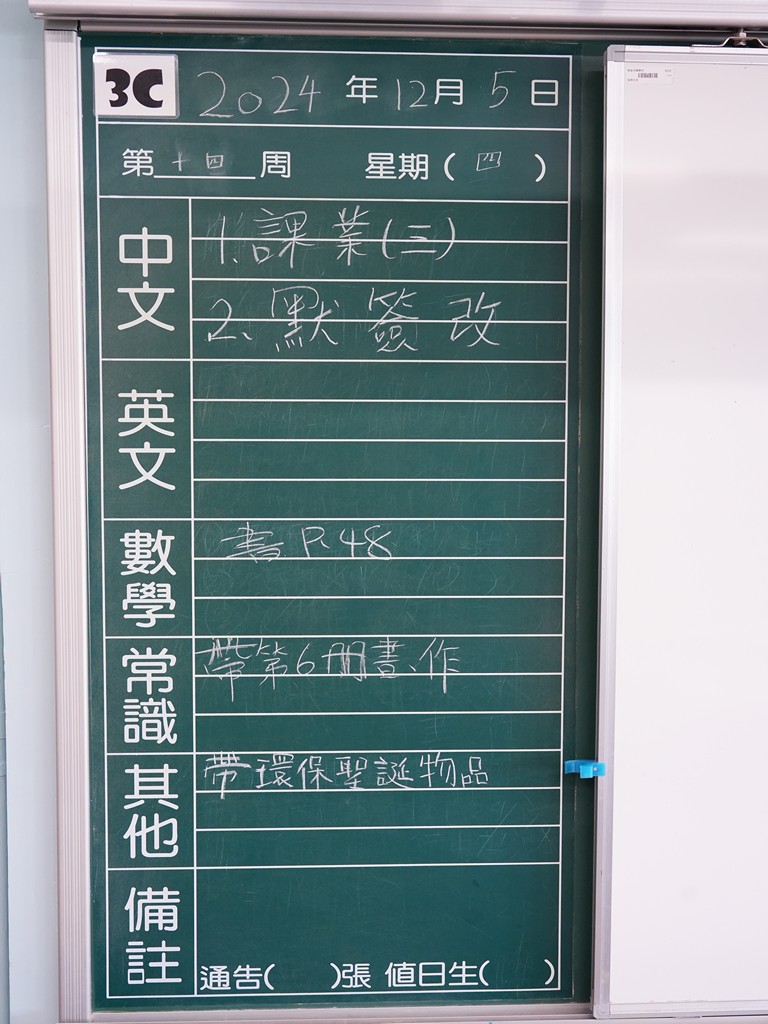 3C 2024 年 12 月 5 日
第 十四 周 星期( 四 )
中文
1. 課業(三)
2. 默簽改
英文
數學
書 P.48
常識
帶第6冊書、作
其他
帶環保聖誕物品
備註
通告( )張 值日生( )